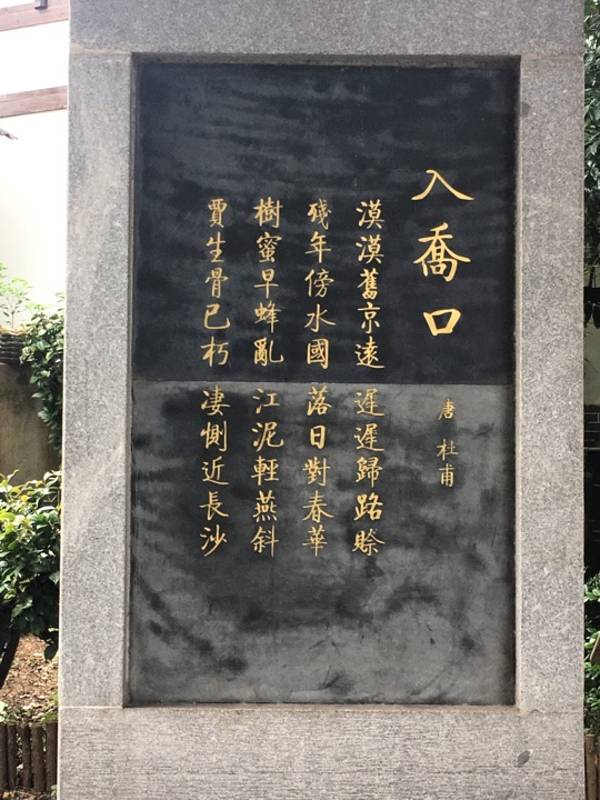 入喬口
唐 杜甫
漠漠舊京遠 遲遲歸路賒
殘年傍水國 落日對春華
樹蜜早蜂亂 江泥輕燕斜
賈生骨已朽 凄惻近長沙